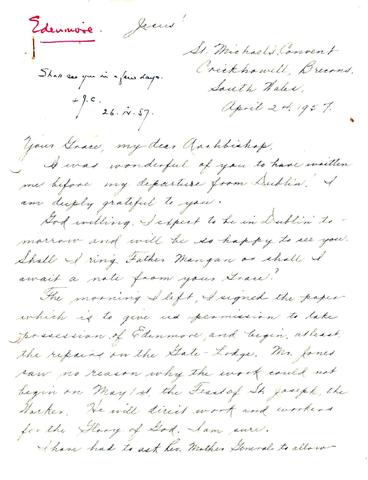 Edenmore.
Jesus!
St. Michael's Convent
Crickhowell, Brecons,
South Wales,
April 24, 1957.
Shall see you in a few days.
+ J.C.
26.IV.57.
Your Grace, my dear Archbishop,
It was wonderful of you to have written
me before my departure from Dublin! I
am deeply grateful to you.
God willing, I expect to be in Dublin to-
morrow and will be so happy to see you.
Shall I ring Father Mangan or shall I
await a note from your Grace?
The morning I left, I signed the paper
which is to give us permission to take
possession of Edenmore and begin, at least,
the repairs on the Gate-Lodge. Mr. Jones
saw no reason why the work could not
begin on May 1st, the Feast of St. Joseph, the
Worker. He will direct work and workers
for the Glory of God, I am sure.
I have had to ask Rev. Mother General to allow